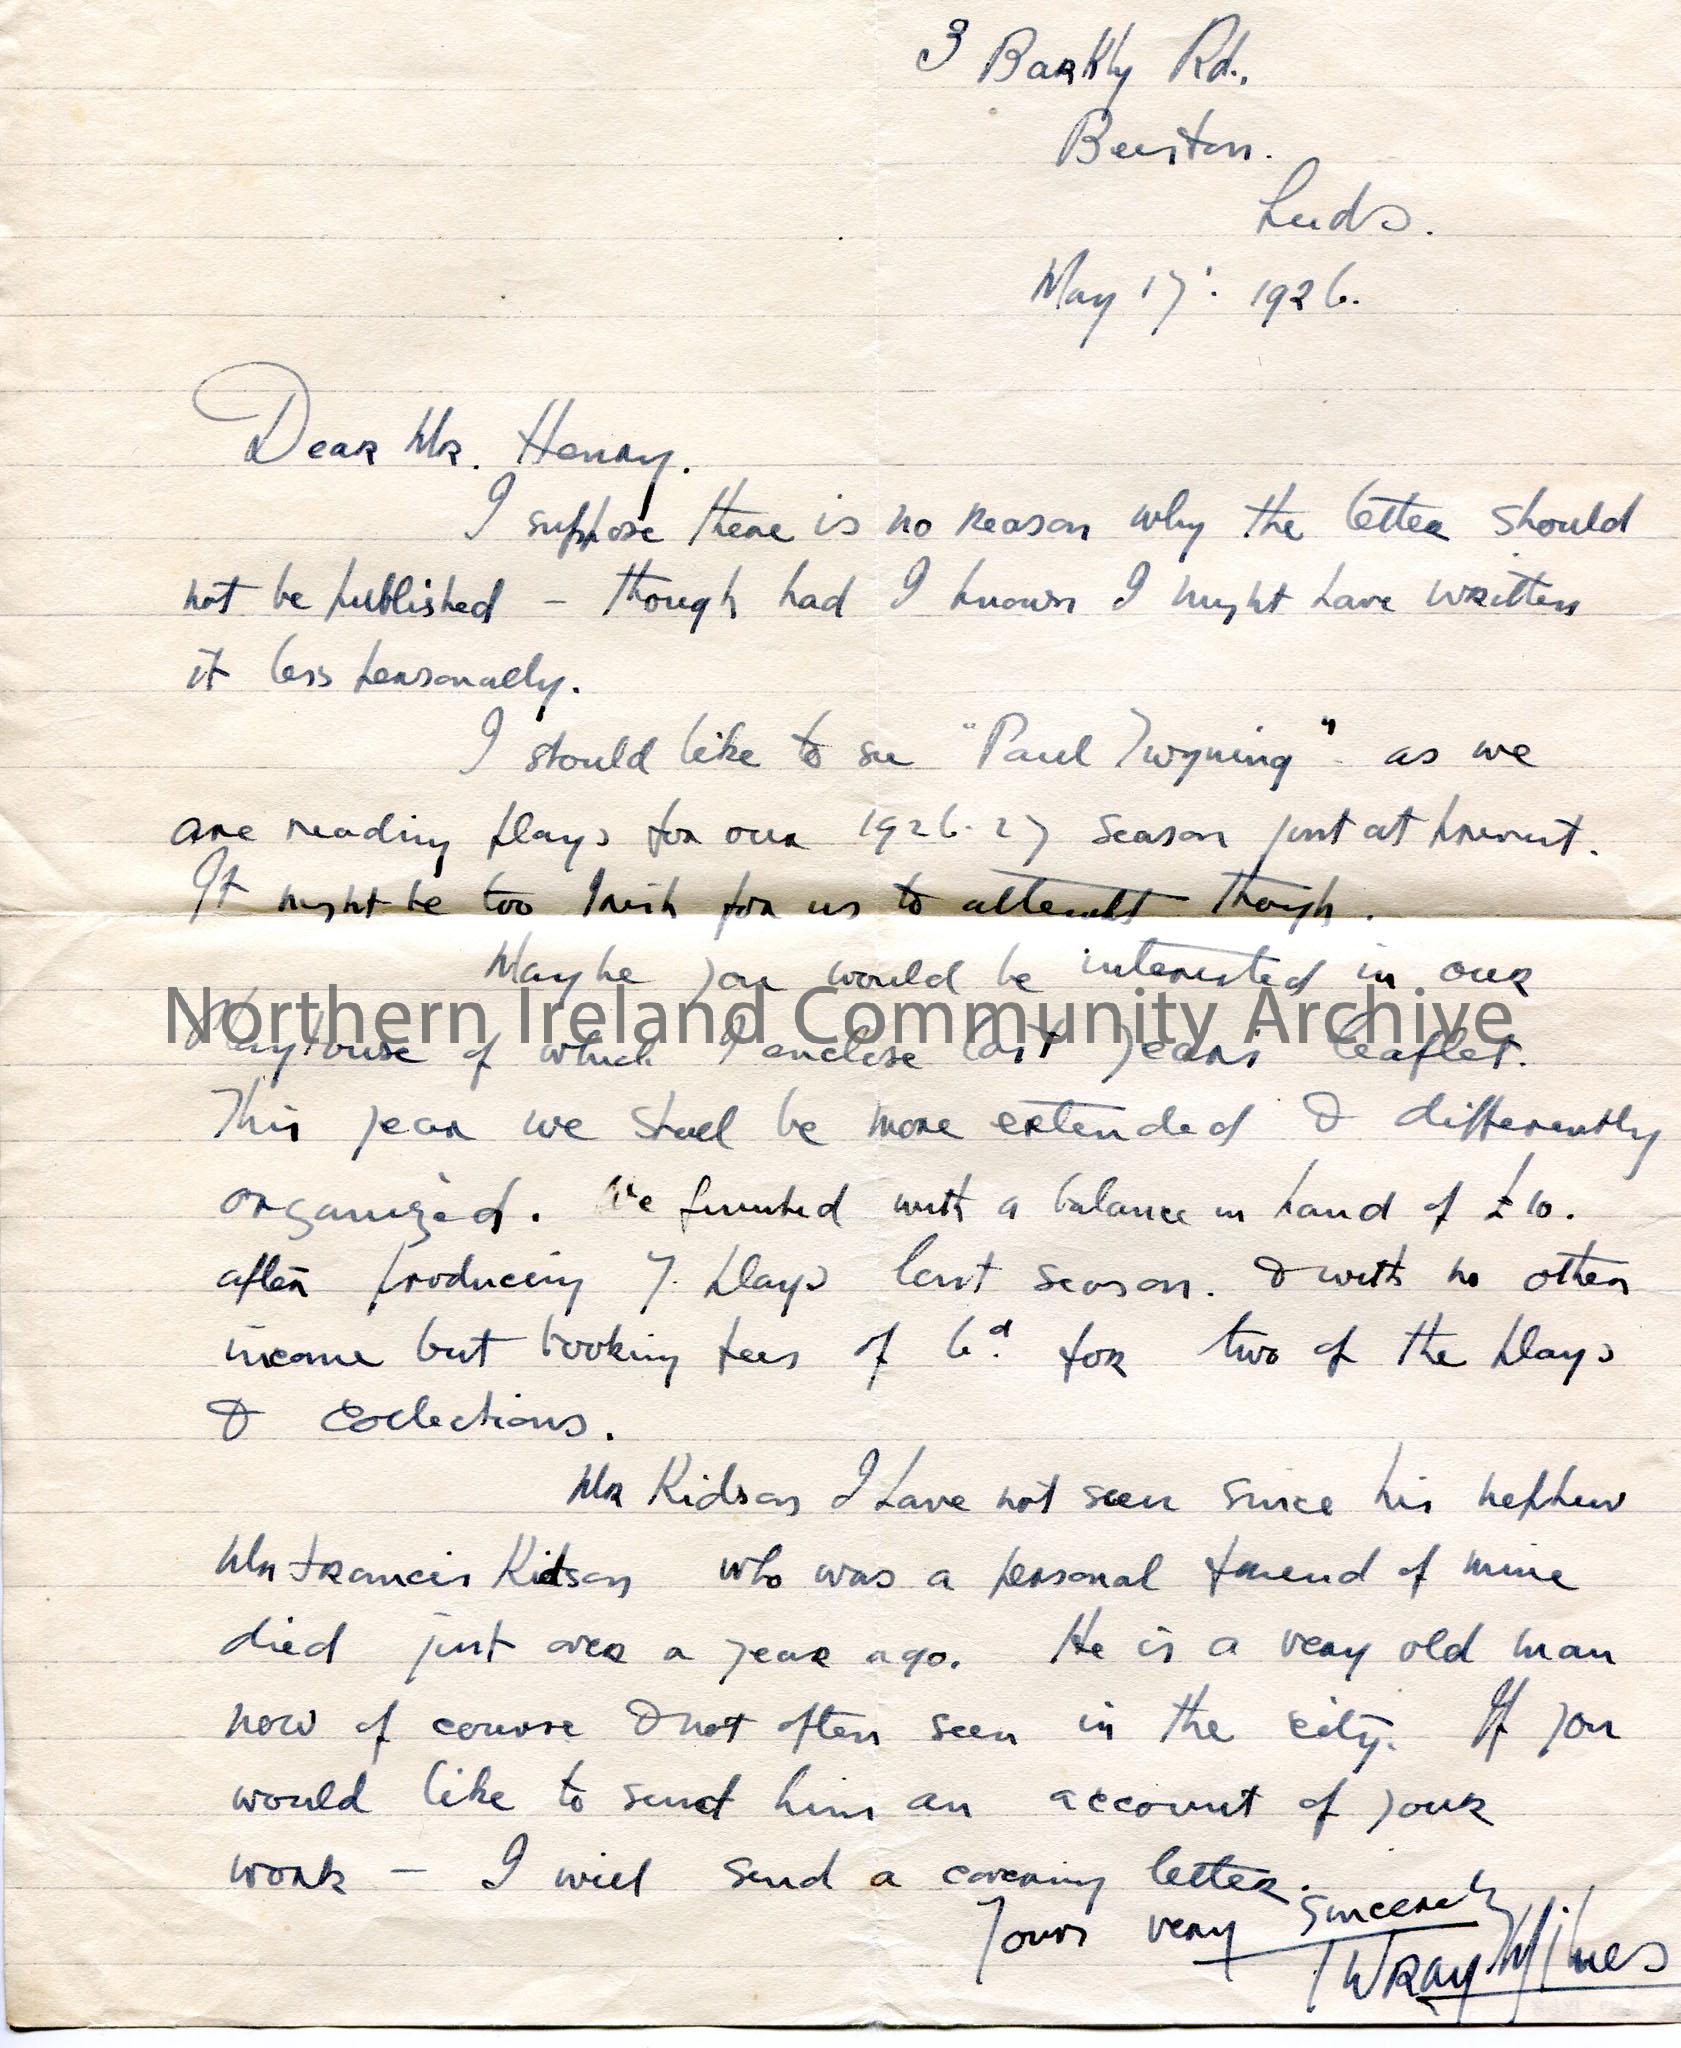 3 Barkly Rd.,
Beeston.
Leeds.
May 17: 1926.
Dear Mr. Henry.
I suppose there is no reason why the letter should
not be published – though had I known I might have written
it less personally.
I should like to see "Paul Twyning" as we
are reading plays for our 1926-27 season just at present.
It might be too Irish for us to attempt though.
Maybe you would be interested in our
Northern Ireland Community Archive
Playhouse of which I enclose last years leaflet.
This year we shall be more extended & differently
organized. We finished with a balance in hand of £10.
after producing 7. plays last season. & with no other
income but booking fees of 6d. for two of the plays
& collections.
Mr Kidson I have not seen since his nephew
Mr Francis Kidson who was a personal friend of mine
died just over a year ago. He is a very old man
now of course & not often seen in the city. If you
would like to send him an account of your
work – I will send a covering letter.
Yours very sincerely
T Wray Milnes